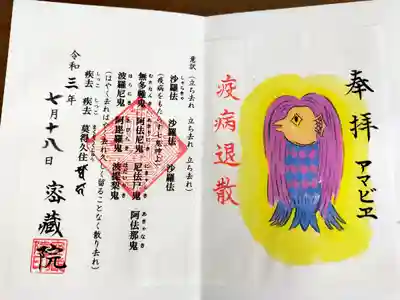 奉拝
アマビヱ
疫病退散
意訳(立ち去れ 立ち去れ 立ち去れ)
沙羅法 沙羅法 沙羅法
(疫病をもたらす鬼神よ)
無多難鬼 阿佉尼鬼 尼佉尸鬼 阿佉那鬼
波羅尼鬼 阿毘羅鬼 波提梨鬼
(はやく去れはやく去れ久しく留ることなく散り去れ)
しっこ しっこ
疾去 疾去 莫得久住
令和三年
七月十八日
密蔵院